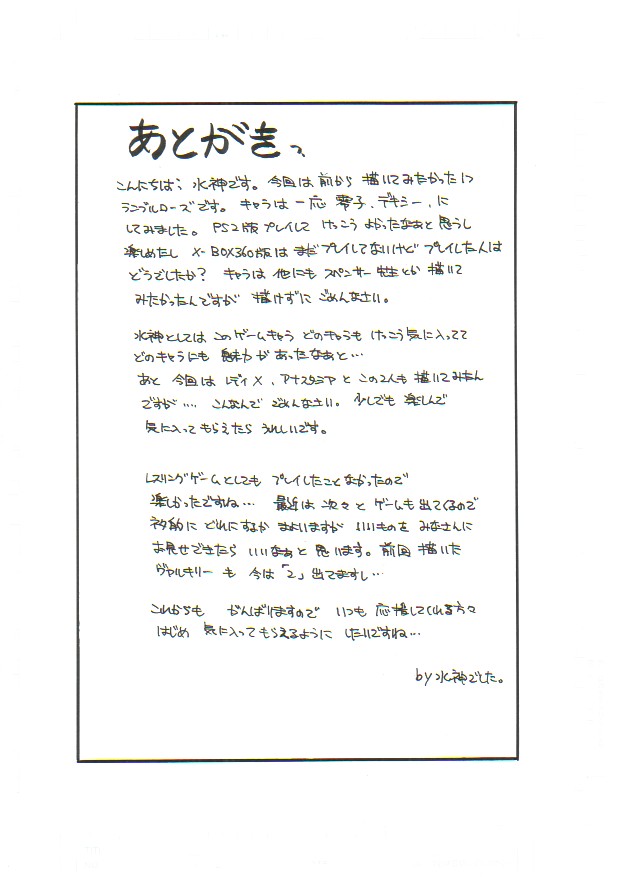 あとがきっ
こんにちは、水神です。今回は前から描いてみたかった
ランブルローズです。キャラは一応 零子、デキシー、に
してみました。PS2版プレイして けっこう よかったなぁと思うし
楽しめたし X-BOX360版は まだプレイしてないけど プレイした人は
どうでしたか？ キャラは 他にも スペンサー先生とか 描いて
みたかったんですが 描けずに ごめんなさい。
水神としては このゲームキャラ どのキャラも けっこう気に入ってて
どのキャラにも 魅力があったなぁと…
あと 今回は レディX、アナスタシアと この2人も 描いてみたん
ですが… こんなんで ごめんなさい。少しでも 楽しんで
気に入ってもらえたら うれしいです。
レスリングゲームとしても プレイしたことなかったので
楽しかったですね… 最近は 次々と ゲームも出てくるので
ネタ的に どれにするか まよいますが いいものを みなさんに
お見せできたら いいなぁと 思います。前回 描いた
ヴァルキリーも 今は「2」出てますし…
これからも がんばりますので いつも 応援してくれる方々
はじめ 気に入ってもらえるように したいですね…
by 水神でした。